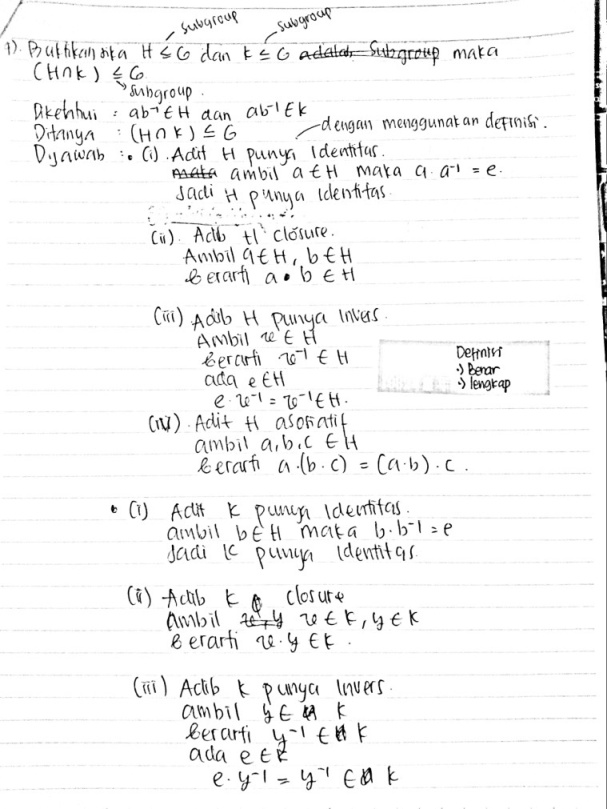 subgroup subgroup
1). Buktikan jika H ≤ G dan K ≤ G adalah Subgroup maka
(H∩K) ≤ G
subgroup.
Diketahui : ab⁻¹ ∈ H dan ab⁻¹ ∈ K
Ditanya : (H∩K) ≤ G dengan menggunakan definisi.
Dijawab : • (i). Adit H punya Identitas.
maka ambil a ∈ H maka a · a⁻¹ = e.
Jadi H punya Identitas
(ii). Adib H closure.
Ambil a ∈ H, b ∈ H
Berarti a • b ∈ H
(iii) Adib H punya Invers.
Ambil x ∈ H
Berarti x⁻¹ ∈ H
ada e ∈ H
e · x⁻¹ = x⁻¹ ∈ H.
Definisi
·) Benar
·) lengkap
(iv). Adit H asosiatif
ambil a, b, c ∈ H
Berarti a · (b · c) = (a · b) · c.
• (i) Adit K punya Identitas.
ambil b ∈ H maka b · b⁻¹ = e
Jadi K punya Identitas
(ii) Adib K closure
Ambil x, y x ∈ K, y ∈ K
Berarti x · y ∈ K.
(iii) Adib K punya Invers.
ambil y ∈ K
Berarti y⁻¹ ∈ K
ada e ∈ K
e · y⁻¹ = y⁻¹ ∈ K